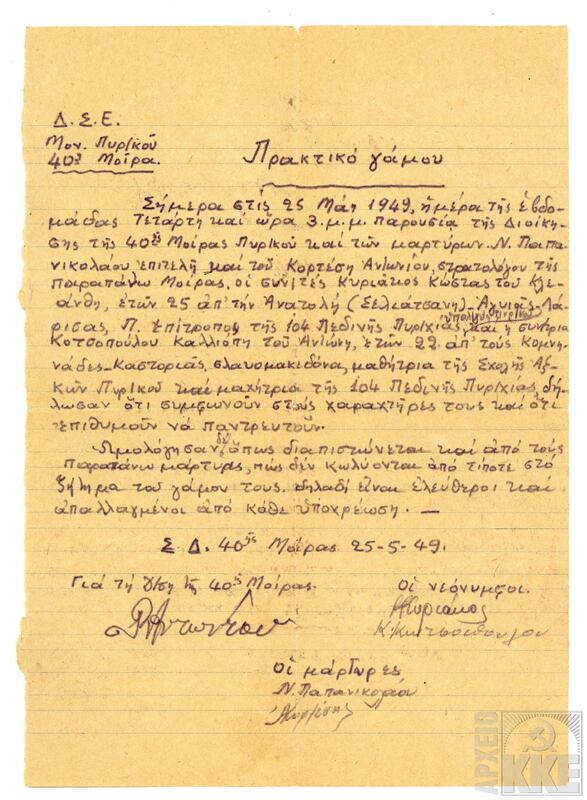 Δ.Σ.Ε.
Μον. Πυρ/κού
40ή Μοίρα.
Πρακτικό γάμου
Σήμερα στις 25 Μάη 1949, ἡμέρα τῆς ἑβδο-
μάδας Τετάρτη καί ὥρα 3.μ.μ. παρουσία τῆς Διοίκη-
σης τῆς 40ης Μοίρας Πυρ/κοῦ καί τῶν μαρτύρων. Ν. Παπα-
νικολάου ἐπιτελῆ καί τοῦ Κορτέση Ἀντωνίου, στρατολόγου τῆς
παραπάνω Μοίρας, οἱ συν/τές Κυριάκος Κώστας τοῦ Κλε-
άνθη, ἐτῶν 25 ἀπ' τήν Ἀνατολή (Σελίτσανη) - Ἀγυιᾶς - Λά-
ρισας, Π. ἐπίτροπος τῆς 104 Πεδινῆς Πυρ/χίας, καί ἡ συν/τρια
ὑπολ/γός πυρ/κοῦ
Κοτσοπούλου Καλλιόπη τοῦ Ἀντώνη, ἐτῶν 22 ἀπ' τούς Κομνη-
νάδες - Καστοριᾶς, σλαυομακεδόνα, μαθήτρια τῆς Σχολῆς Ἀξ-
κῶν Πυρ/κοῦ καί μαχήτρια τῆς 104 Πεδινῆς Πυρ/χίας, δή-
λωσαν ὅτι συμφωνοῦν στούς χαραχτῆρες τους καί ὅτι
ἐπιθυμοῦν νά παντρευτοῦν.
Ὡμολόγησαν δέ, ὅπως διαπιστώνεται καί ἀπό τούς
παραπάνω μάρτυρες, πώς δέν κωλύονται ἀπό τίποτε στό
ζήτημα τοῦ γάμου τους. δηλαδή εἶναι ἐλεύθεροι καί
ἀπαλλαγμένοι ἀπό κάθε ὑποχρέωση. —
Σ. Δ. 40ης Μοίρας 25-5-49.
Γιά τή Δ/ση τῆς 40ης Μοίρας.
οἱ νεόνυμφοι.
Κυριάκος
Κ. Κωτσοπούλου
οἱ μάρτυρες
Ν. Παπανικολάου
Κορτέσης
ΑΡΧΕΙΟ
ΚΚΕ